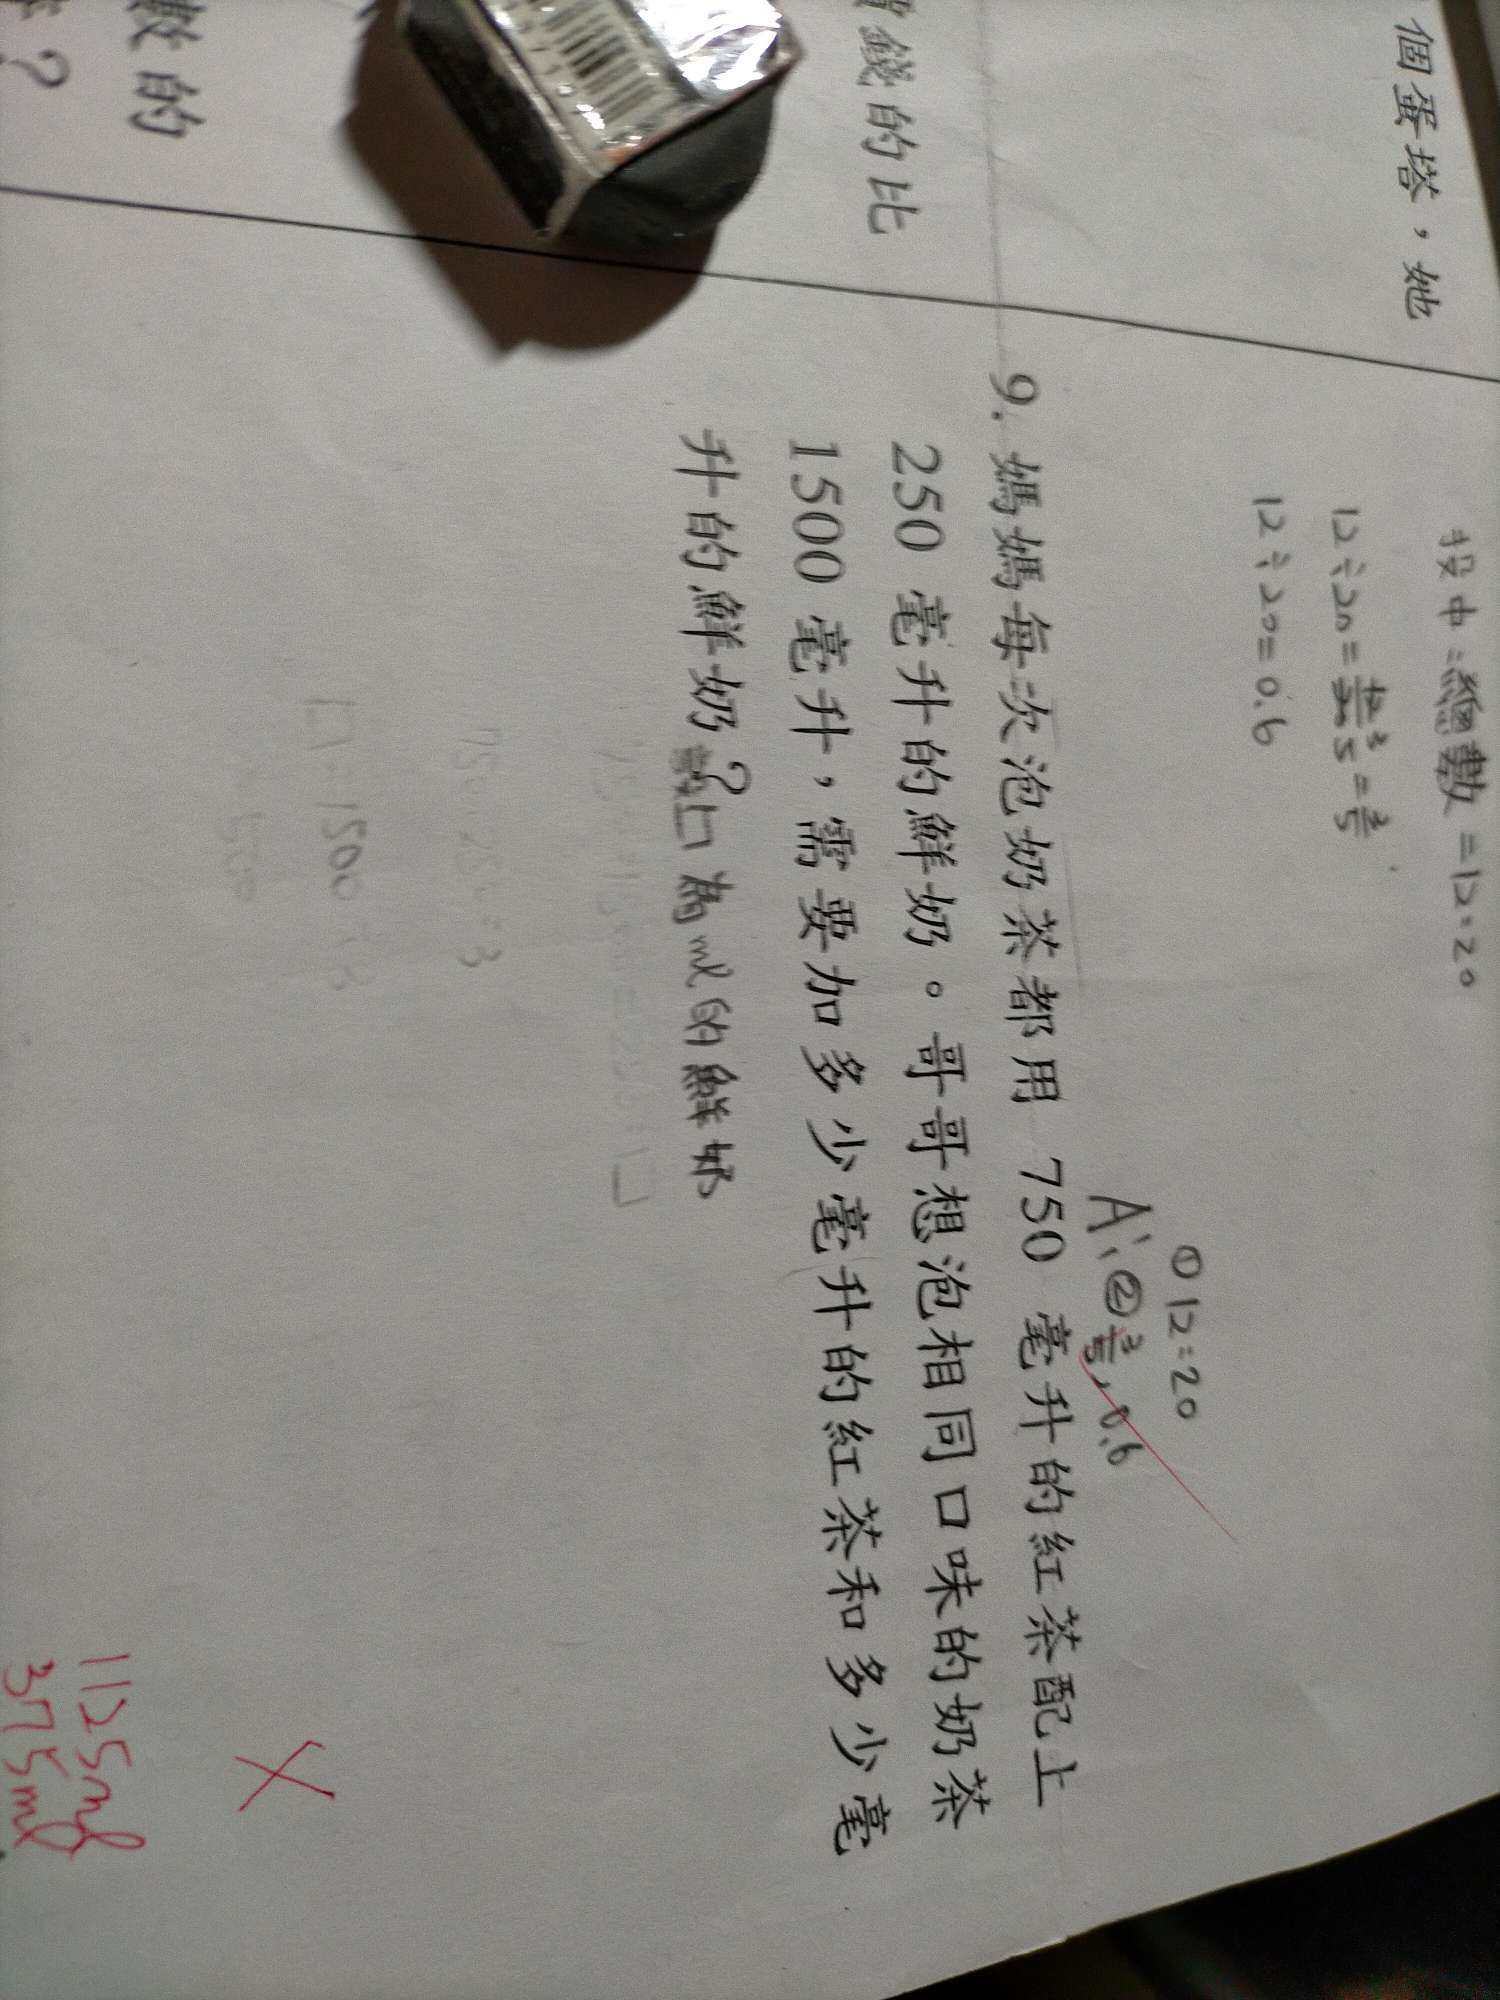 個蛋塔，她
錢的比
數的
？
投中：總數=12:20
12÷20=12/20 3/5=3/5
12÷20=0.6
①12:20
A:②3/5,0.6
9. 媽媽每次泡奶茶都用 750 毫升的紅茶配上
250 毫升的鮮奶。哥哥想泡相同口味的奶茶
1500 毫升，需要加多少毫升的紅茶和多少毫
升的鮮奶？設口為ml的鮮奶
1125ml
375ml